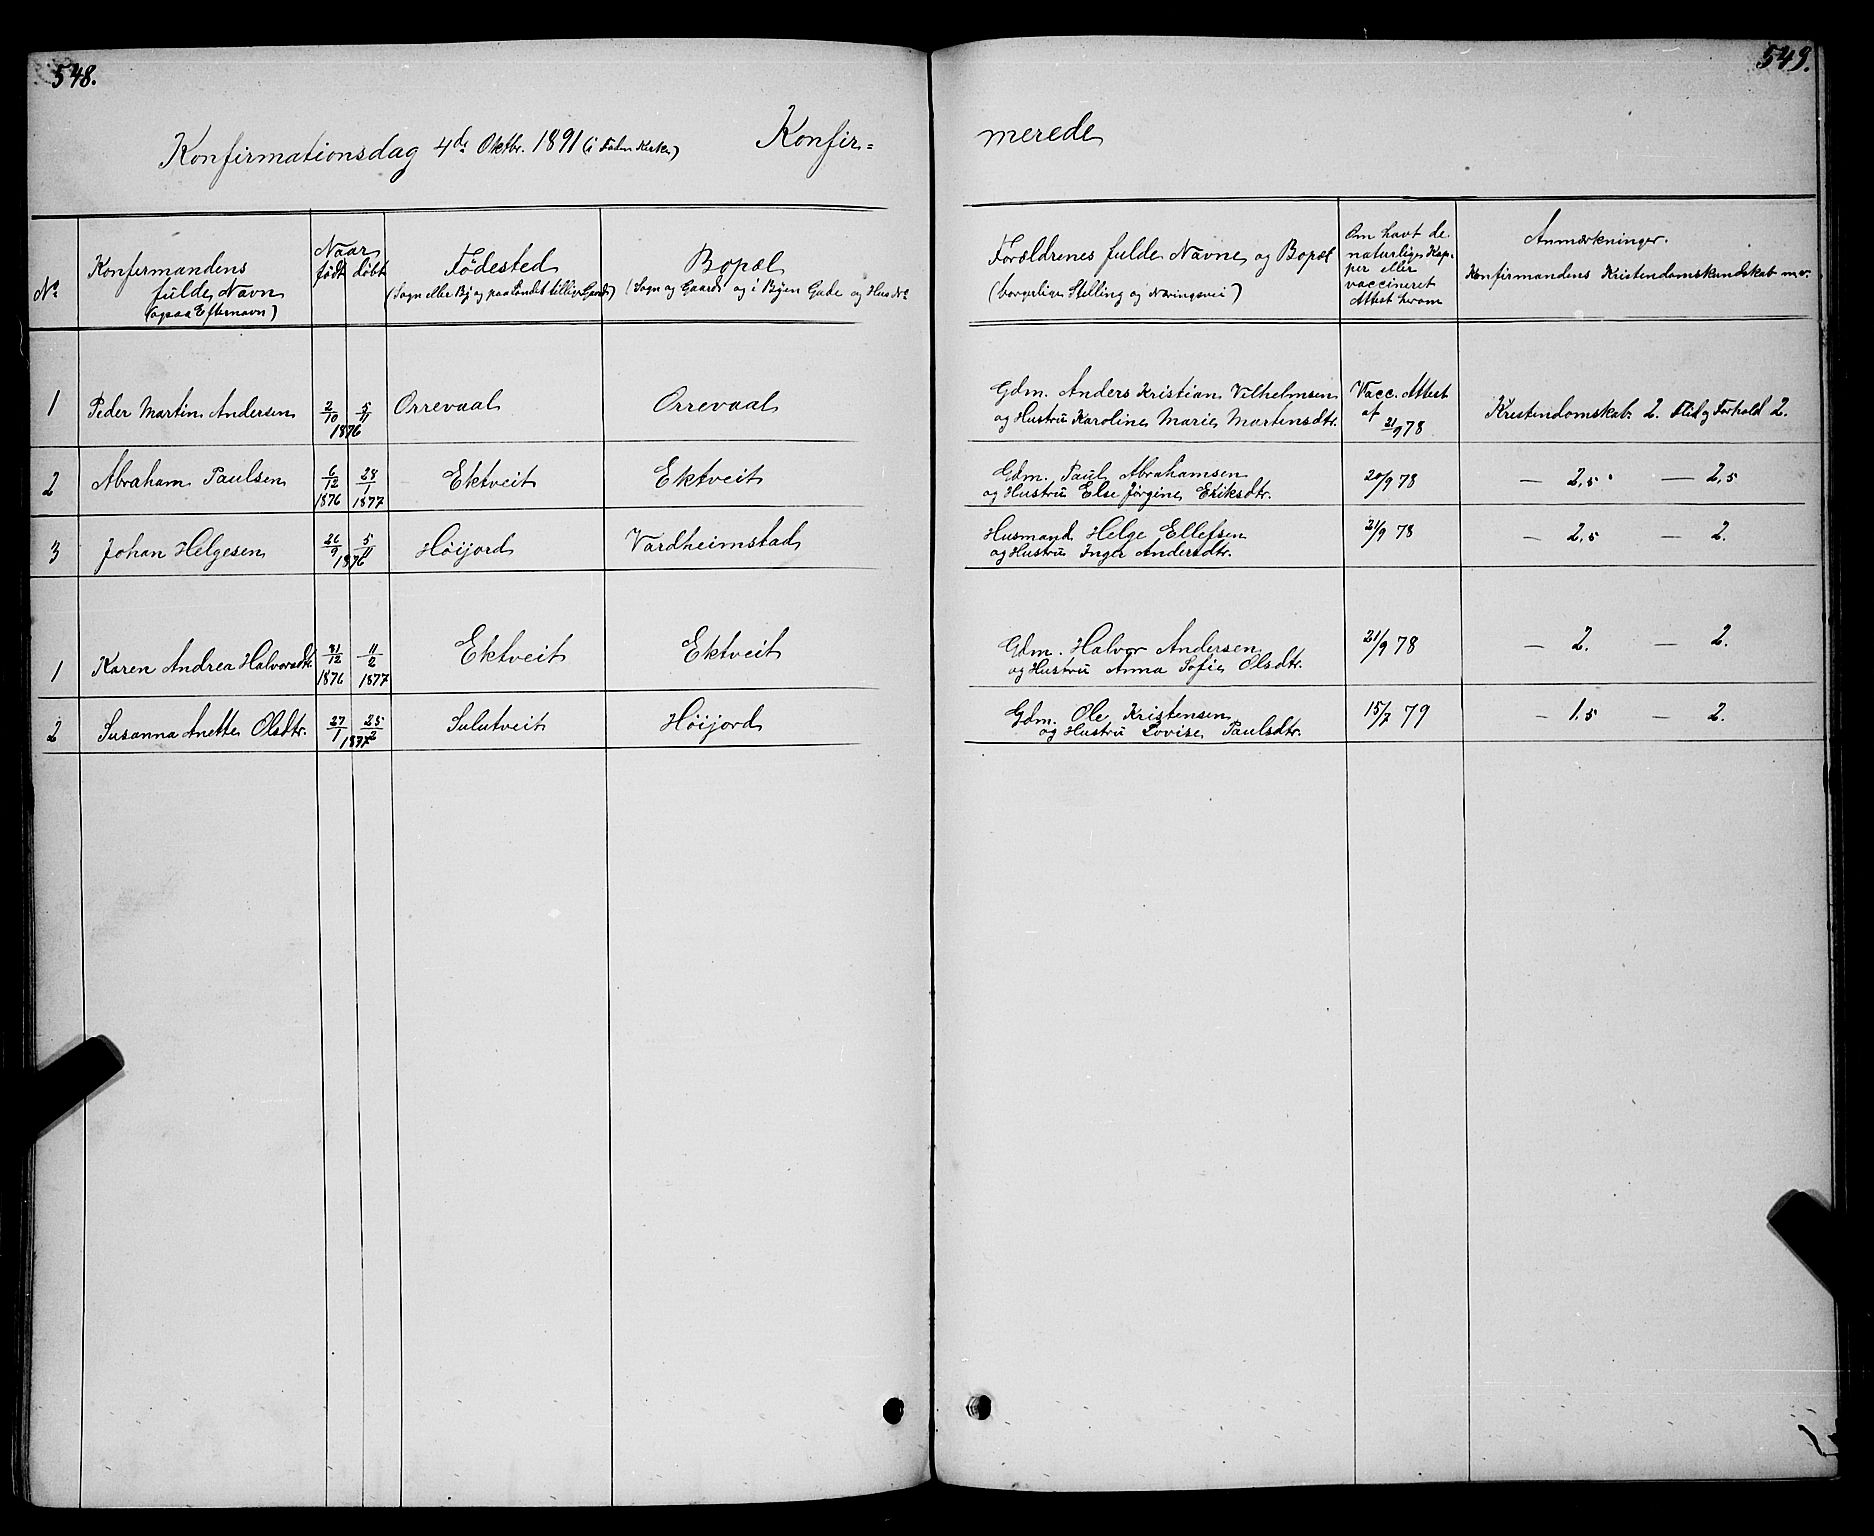 548.
549.
Konfirmationsdag 4de Oktbr. 1891 (i Kirke)
Konfir=
merede
No
Konfirmandens fulde Navn (ogsaa Efternavn)
Naar født
døbt
Fødested (Sogn eller By og paa Landet tillige Gaard)
Bopæl (Sogn og Gaard og i Byen Gade og Hus No)
Forældrenes fulde Navne og Bopæl (borgerlige Stilling og Næringsvei)
Om havt de naturlige Kopper eller vaccineret Attest herom
Anmærkninger. Konfirmandens Kristendomskundskab m.v.
1 Peder Martin Andersen 2/10 5/11 1876 Orrevaal Orrevaal Gdm. Anders Kristian Vilhelmsen Vacc. Attest
og Hustru Karoline Marie Martensdtr. af 21/9 78 Kristendomskab. 2. Flid og Forhold 2.
2 Abraham Paulsen 6/12 1876 28/1 1877 Ektveit Ektveit Gdm. Paul Abrahamsen 20/9 78 — 2,5 — 2,5
og Hustru Else Jørgine Eriksdtr.
3 Johan Helgesen 26/9 5/11 1876 Høijord Vardheimstad Husmand Helge Ellefsen 21/9 78 — 2,5 — 2.
og Hustru Inger Andersdtr.
1 Karen Andrea Halvorsdtr. 31/12 1876 11/2 1877 Ektveit Ektveit Gdm. Halvor Andersen 21/9 78 — 2. — 2.
og Hustru Anna Sofie Olsdtr.
2 Susanna Anette Olsdtr. 27/1 25/2 1877 Sulutveit Høijord Gdm. Ole Kristensen 15/7 79 — 1.5 — 2.
og Hustru Lovise Paulsdtr.